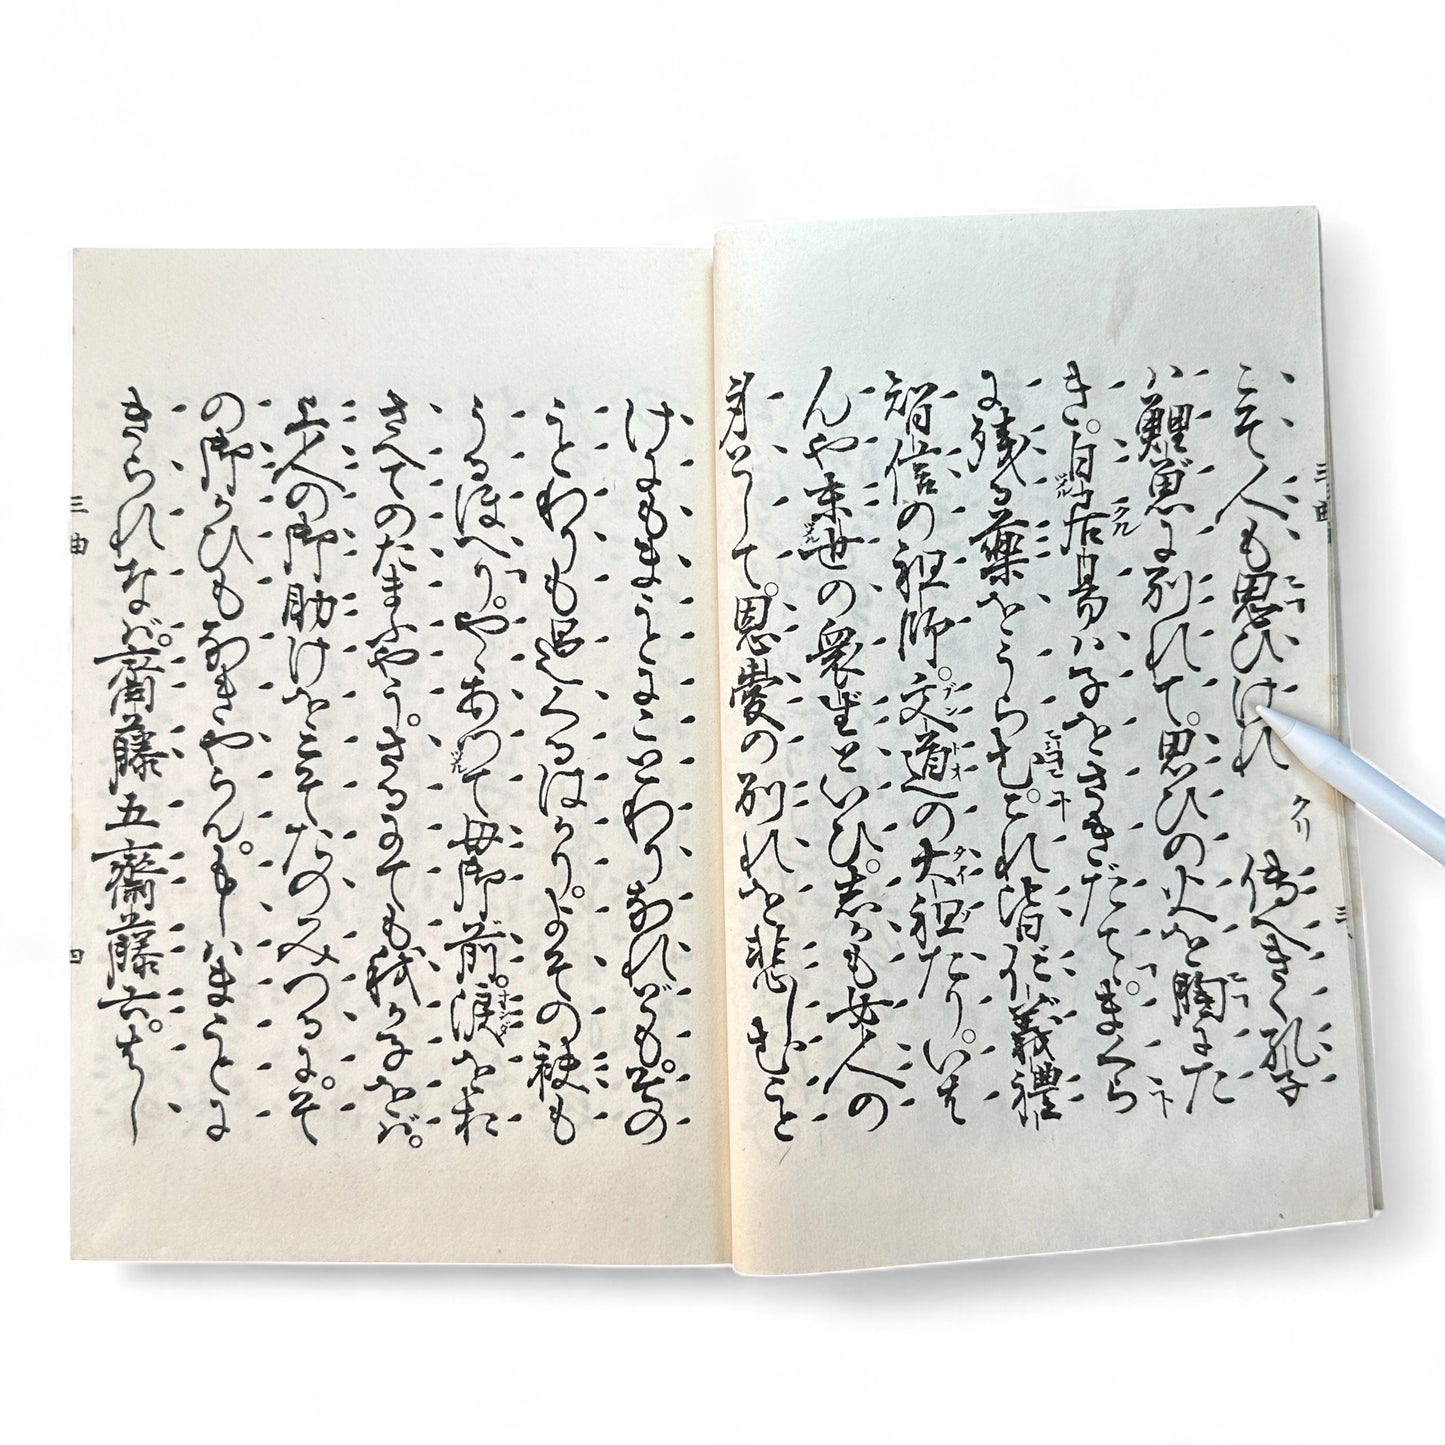 こそ人も思ひけれ 傳へきく孔子
ハ鯉魚に別れて。思ひの火を胸にた
き。白居易ハ子をさきだてゝ。まくら
に残る藥をうらむ。これ皆仁義禮
智信の祖師。文道の大祖たり。いは
んや末世の衆生といひ。しかも女人の
身として。恩愛の別れを悲しむこと
げにもまことにことわりなれども。その
ことわりも過くるばかり。よその袂も
うるほへり。やゝあつて母御前。涙をお
さへてのたまふやう。さるにても我が子をば。
上人の御助けをこそたのみつるに。そ
の御かひもなきやらん。もしハまことに
きられなば。齋藤五齋藤六。はし
クリ
クル
ブン
ドオ
タイ
三曲
三
三曲
四